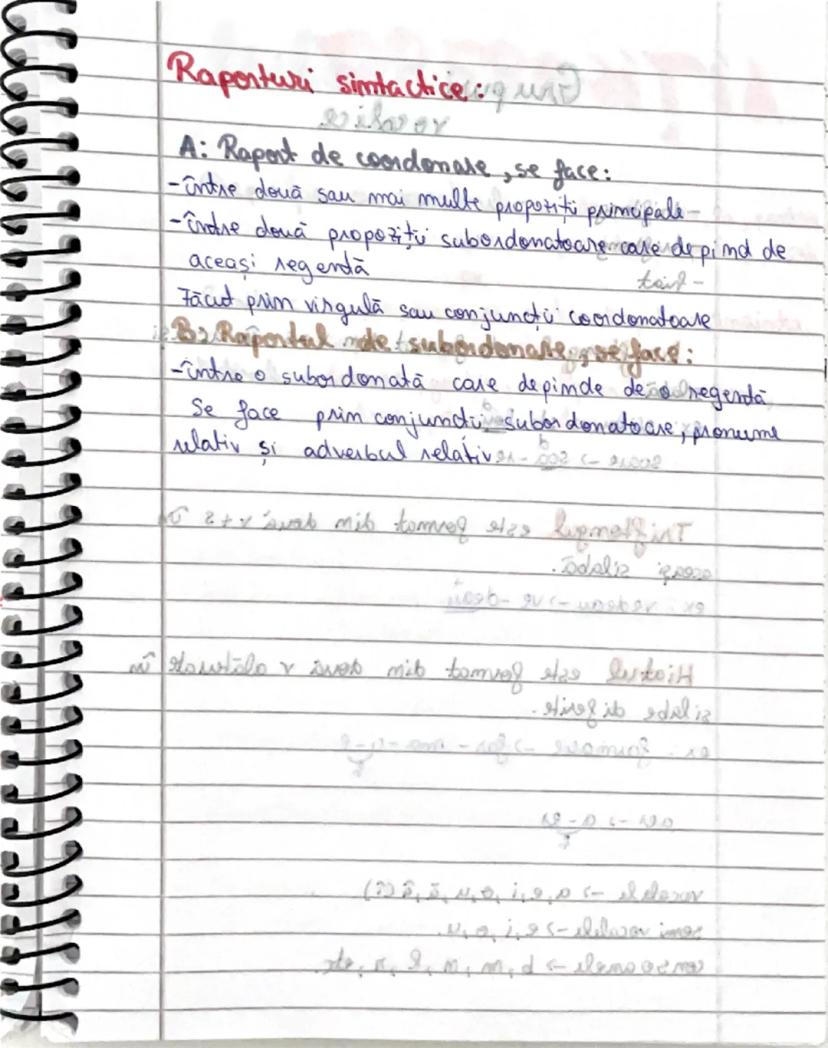 Raporturi sintactice:
A: Raport de coordonare, se face:
-între două sau mai multe propoziți principale
-între două propoziții subordonatoare care depind de
aceași regentă
Făcut prin virgulă sau conjuncții coordonatoare
B: Raportul de subordonare, se face:
-între o subordonată care depinde de o regentă
Se face prin conjuncții subordonatoare, pronume
relativ și adverbul relativ